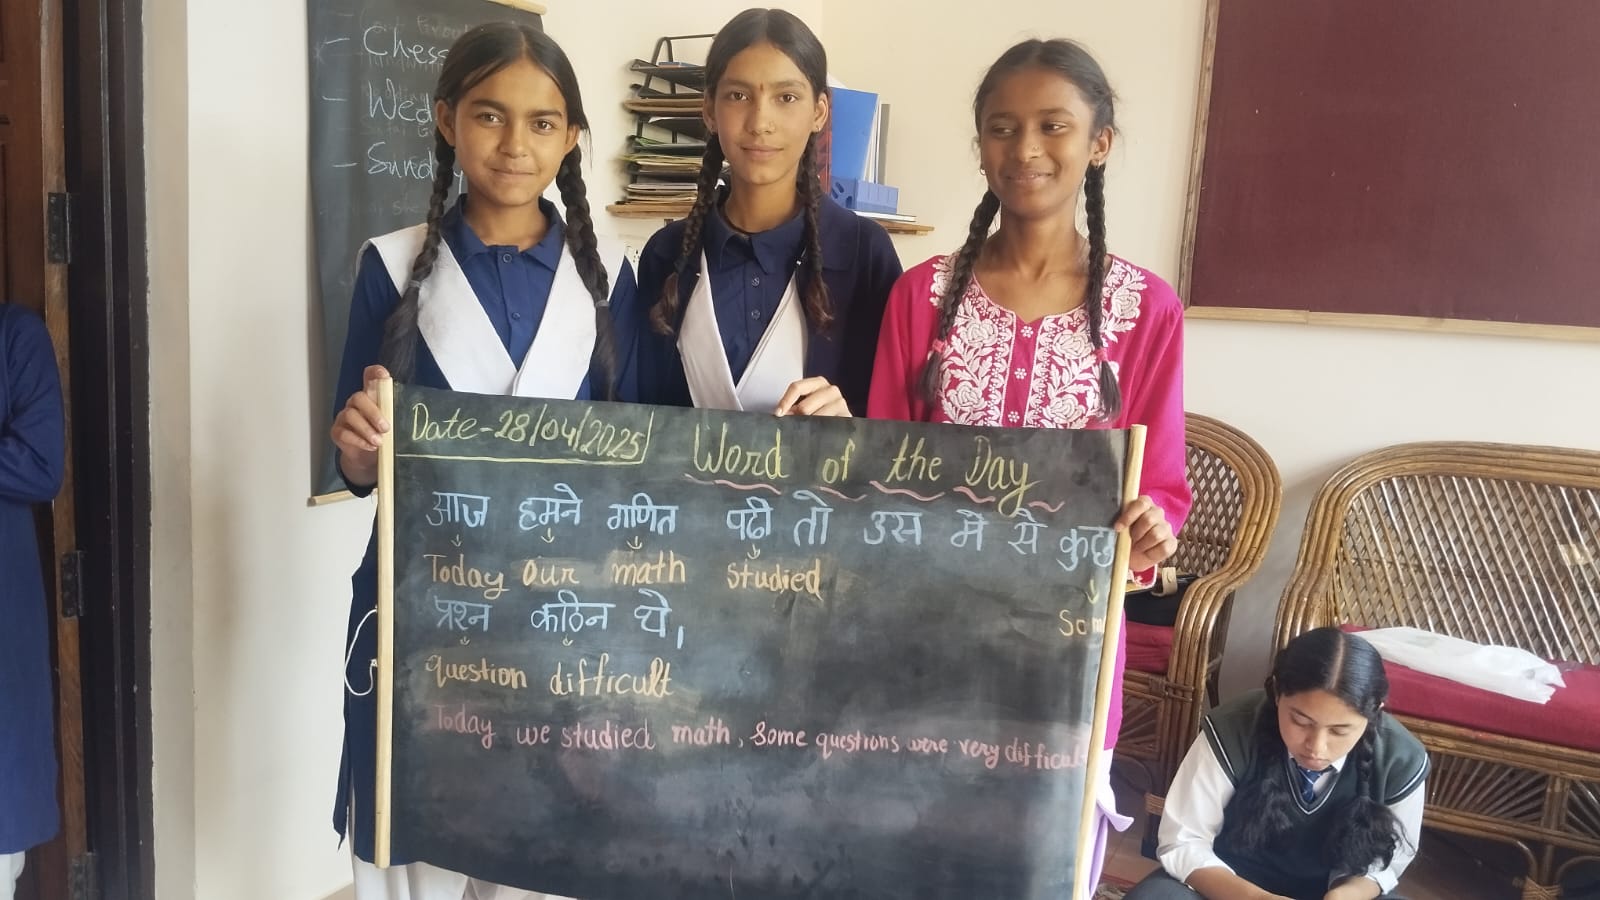 Chess
Wed
Sund
Date-28/04/2025
Word of the Day
आज हमने गणित पढी तो उस मे से कुछ
Today our math studied
Som
प्रश्न कठिन थे।
question difficult
Today we studied math, Some questions were very difficult